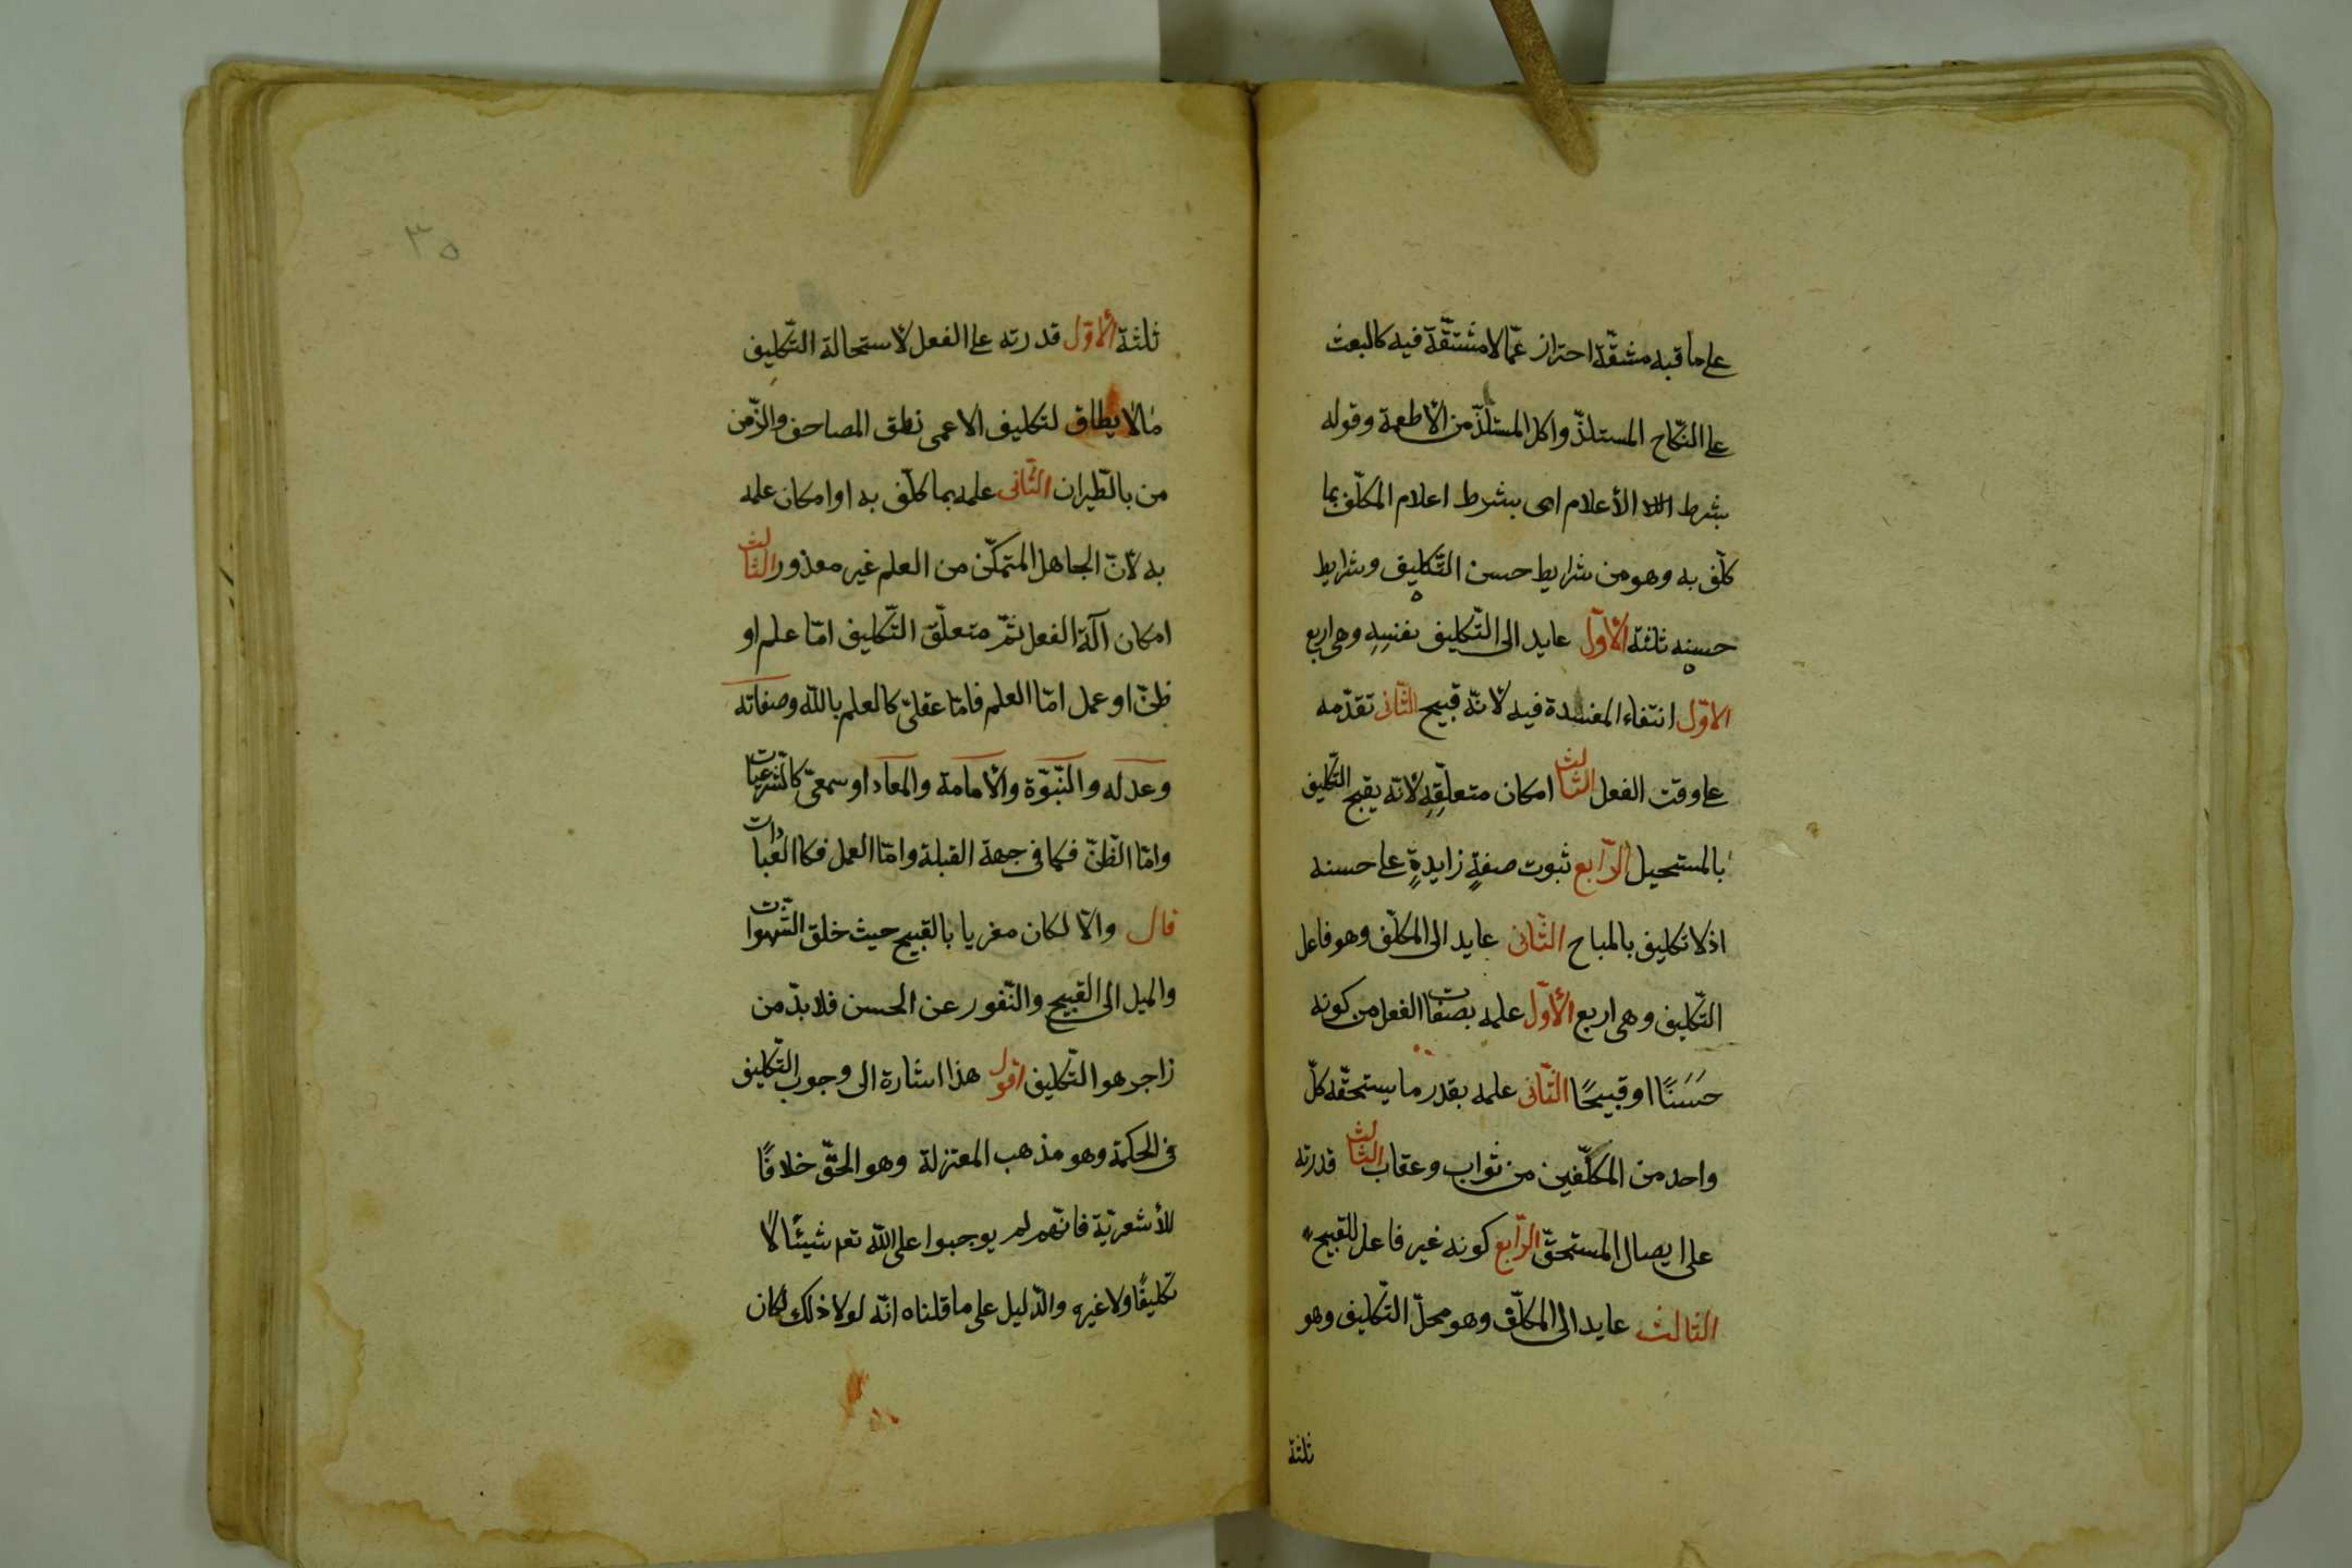 على ما فيه مشقّة احتراز عمّا لا مشقّة فيه كالبعث
على النّكاح المستلذّ واكل المستلذّ من الأطعمة وقوله
بشرط الأعلام اى بشرط اعلام المكلّف بما
كلّف به وهو من شرايط حسن التّكليف وشرايط
حسنه ثلثة الأوّل عايد الى التّكليف نفسِهِ وهى اربع
الاوّل انتفاء المفسدة فيه لأنّه قبيح الثّانى تقدّمه
على وقت الفعل الثّالث امكان متعلّقِهِ لأنّه يقبح التّكليف
بالمستحيل الرّابع ثبوت صفةٍ زايدةٍ على حسنه
اذ لا تكليف بالمباح الثّانى عايد الى المكلّف وهو فاعل
التّكليف وهى اربع الأوّل علمه بصفات الفعل من كونه
حَسَنًا او قبيحًا الثّانى علمه بقدر ما يستحقّه كلّ
واحد من المكلّفين من ثواب وعقاب الثّالث قدرته
على ايصال المستحقّ الرّابع كونه غير فاعل للقبيح
الثالث عايد الى المكلّف وهو محلّ التّكليف وهو
ثلثة
٣٥
ثلثة الأوّل قدرته على الفعل لأستحالة التّكليف
مالا يطاق لتكليف الاعمى نطق المصاحف والزّمن
من بالطّيران الثّانى علمه بما كلّف به او امكان علمه
به لأنّ الجاهل المتمكّن من العلم غير معذور الثّالث
امكان آلة الفعل ثمّ متعلّق التّكليف امّا علم او
ظنّ او عمل امّا العلم فامّا عقلىّ كالعلم بالله وصفاته
وعدله والنّبوّة والأمامة والمعاد او سمعىّ كالشّرعيات
وامّا الظنّ فكما فى جهة القبلة وامّا العمل فكالعبادات
قال والاّ لكان مغريا بالقبيح حيث خلق الشّهوات
والميل الى القبيح والنّفور عن الحسن فلا بدّ من
زاجر هو التّكليف اقول هذا اشارة الى وجوب التّكليف
فى الحكمة وهو مذهب المعتزلة وهو الحقّ خلافًا
للأشعريّة فانّهم لم يوجبوا على الله تعم شيئًا لا
تكليفًا ولا غيره والدّليل على ما قلناه انّه لولا ذلك لكان